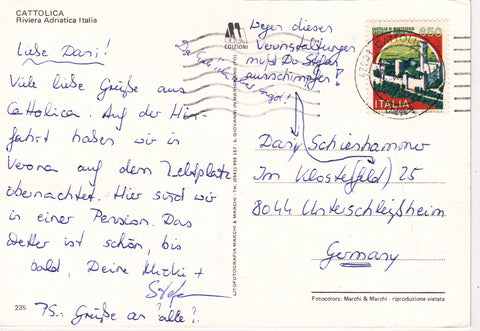 CATTOLICA
Riviera Adriatica Italia
Liebe Dani!
Viele liebe Grüße aus
Cattolica. Auf der Hin-
fahrt haben wir in
Verona auf dem Zeltplatz
übernachtet. Hier sind wir
in einer Pension. Das
Wetter ist schön, bis
bald, Deine Micki +
Stefan
PS.: Grüße an "alle"!
235
EDIZIONI
Wegen dieser
Veranstaltungen
mußt Du Stefan
ausschimpfen!
LITOFOTOGRAFIA MARCHI & MARCHI - Tel. (0541) 996 287 - S. GIOVANNI IN MARIGNANO (FO)
650
ITALIA
Dani Schieshammer
Im Klosterfeld 25
8044 Unterschleißheim
Germany
Fotocolors: Marchi & Marchi - riproduzione vietata